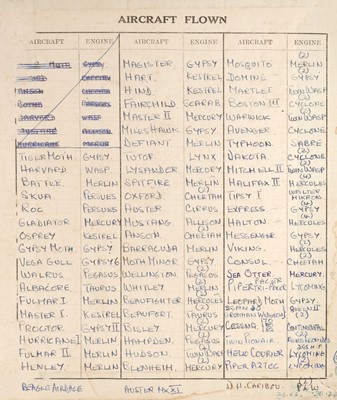 AIRCRAFT FLOWN
AIRCRAFT ENGINE AIRCRAFT ENGINE AIRCRAFT ENGINE
MOTH GYPSY MAGISTER. GYPSY MOSQUITO (2) MERLIN
CHEETAH HART. KESTREL DOMINE. (2) GYPSY
ANSON CHEETAH HIND. KESTREL MARTLET TWIN WASP
BOTHA PERSEUS FAIRCHILD SCARAB BOSTON III (2) CYCLONE
HARVARD WASP MASTER II MERCURY WARWICK (2) TWIN WASP
MUSTANG ALLISON MILES HAWK GYPSY AVENGER. CYCLONE
HURRICANE MERLIN DEFIANT. MERLIN TYPHOON. SABRE
TIGER MOTH GYPSY TUTOR LYNX DAKOTA. (2) CYCLONE
HARVARD WASP LYSANDER MERCURY MITCHELL II (2) TWIN WASP
BATTLE. MERLIN SPITFIRE MERLIN HALIFAX II (4) HERCULES
SKUA PERSUES OXFORD. (2) CHEETAH TIPSY I WALTER MIKRON
ROC PERSUES AUSTER CIRRUS EXPRESS (4) GYPSY
GLADIATOR MERCURY MUSTANG ALLISON HALTON. (4) HERCULES
OSPREY KESTREL ANSON (2) CHEETAH MESSENGER GYPSY
GYPSY MOTH GYPSY BARRACUDA MERLIN VIKING. (2) HERCULES
VEGA GULL GYPSY 6 MOTH MINOR GYPSY CONSUL. (2) CHEETAH
WALRUS PEGASUS WELLINGTON (2) PEGASUS SEA OTTER. MERCURY.
ALBACORE TAURUS WHITLEY (2) MERLIN TRI-PACER LYCOMING
FULMAR I MERLIN BEAUFIGHTER (2) HERCULES LEOPARD MOTH GYPSY
MASTER I. KESTREL BEAUFORT. (2) TAURUS QUEEN II
PROCTOR GYPSY II BISLEY. (2) MERCURY CESSNA CONTINENTAL
HURRICANE I MERLIN HAMPDEN. (2) PEGASUS TWIN PIONAIR (2)
FULMAR II MERLIN HUDSON. (2) TWIN WASP HELIO COURIER LYCOMING
HENLEY. MERLIN BLENHEIM. (2) MERCURY PIPER AZTEC (2) LYCOMING
BEAGLE AIREDALE AUSTER MK XI. D.H. CARIBOU. (2) P&W